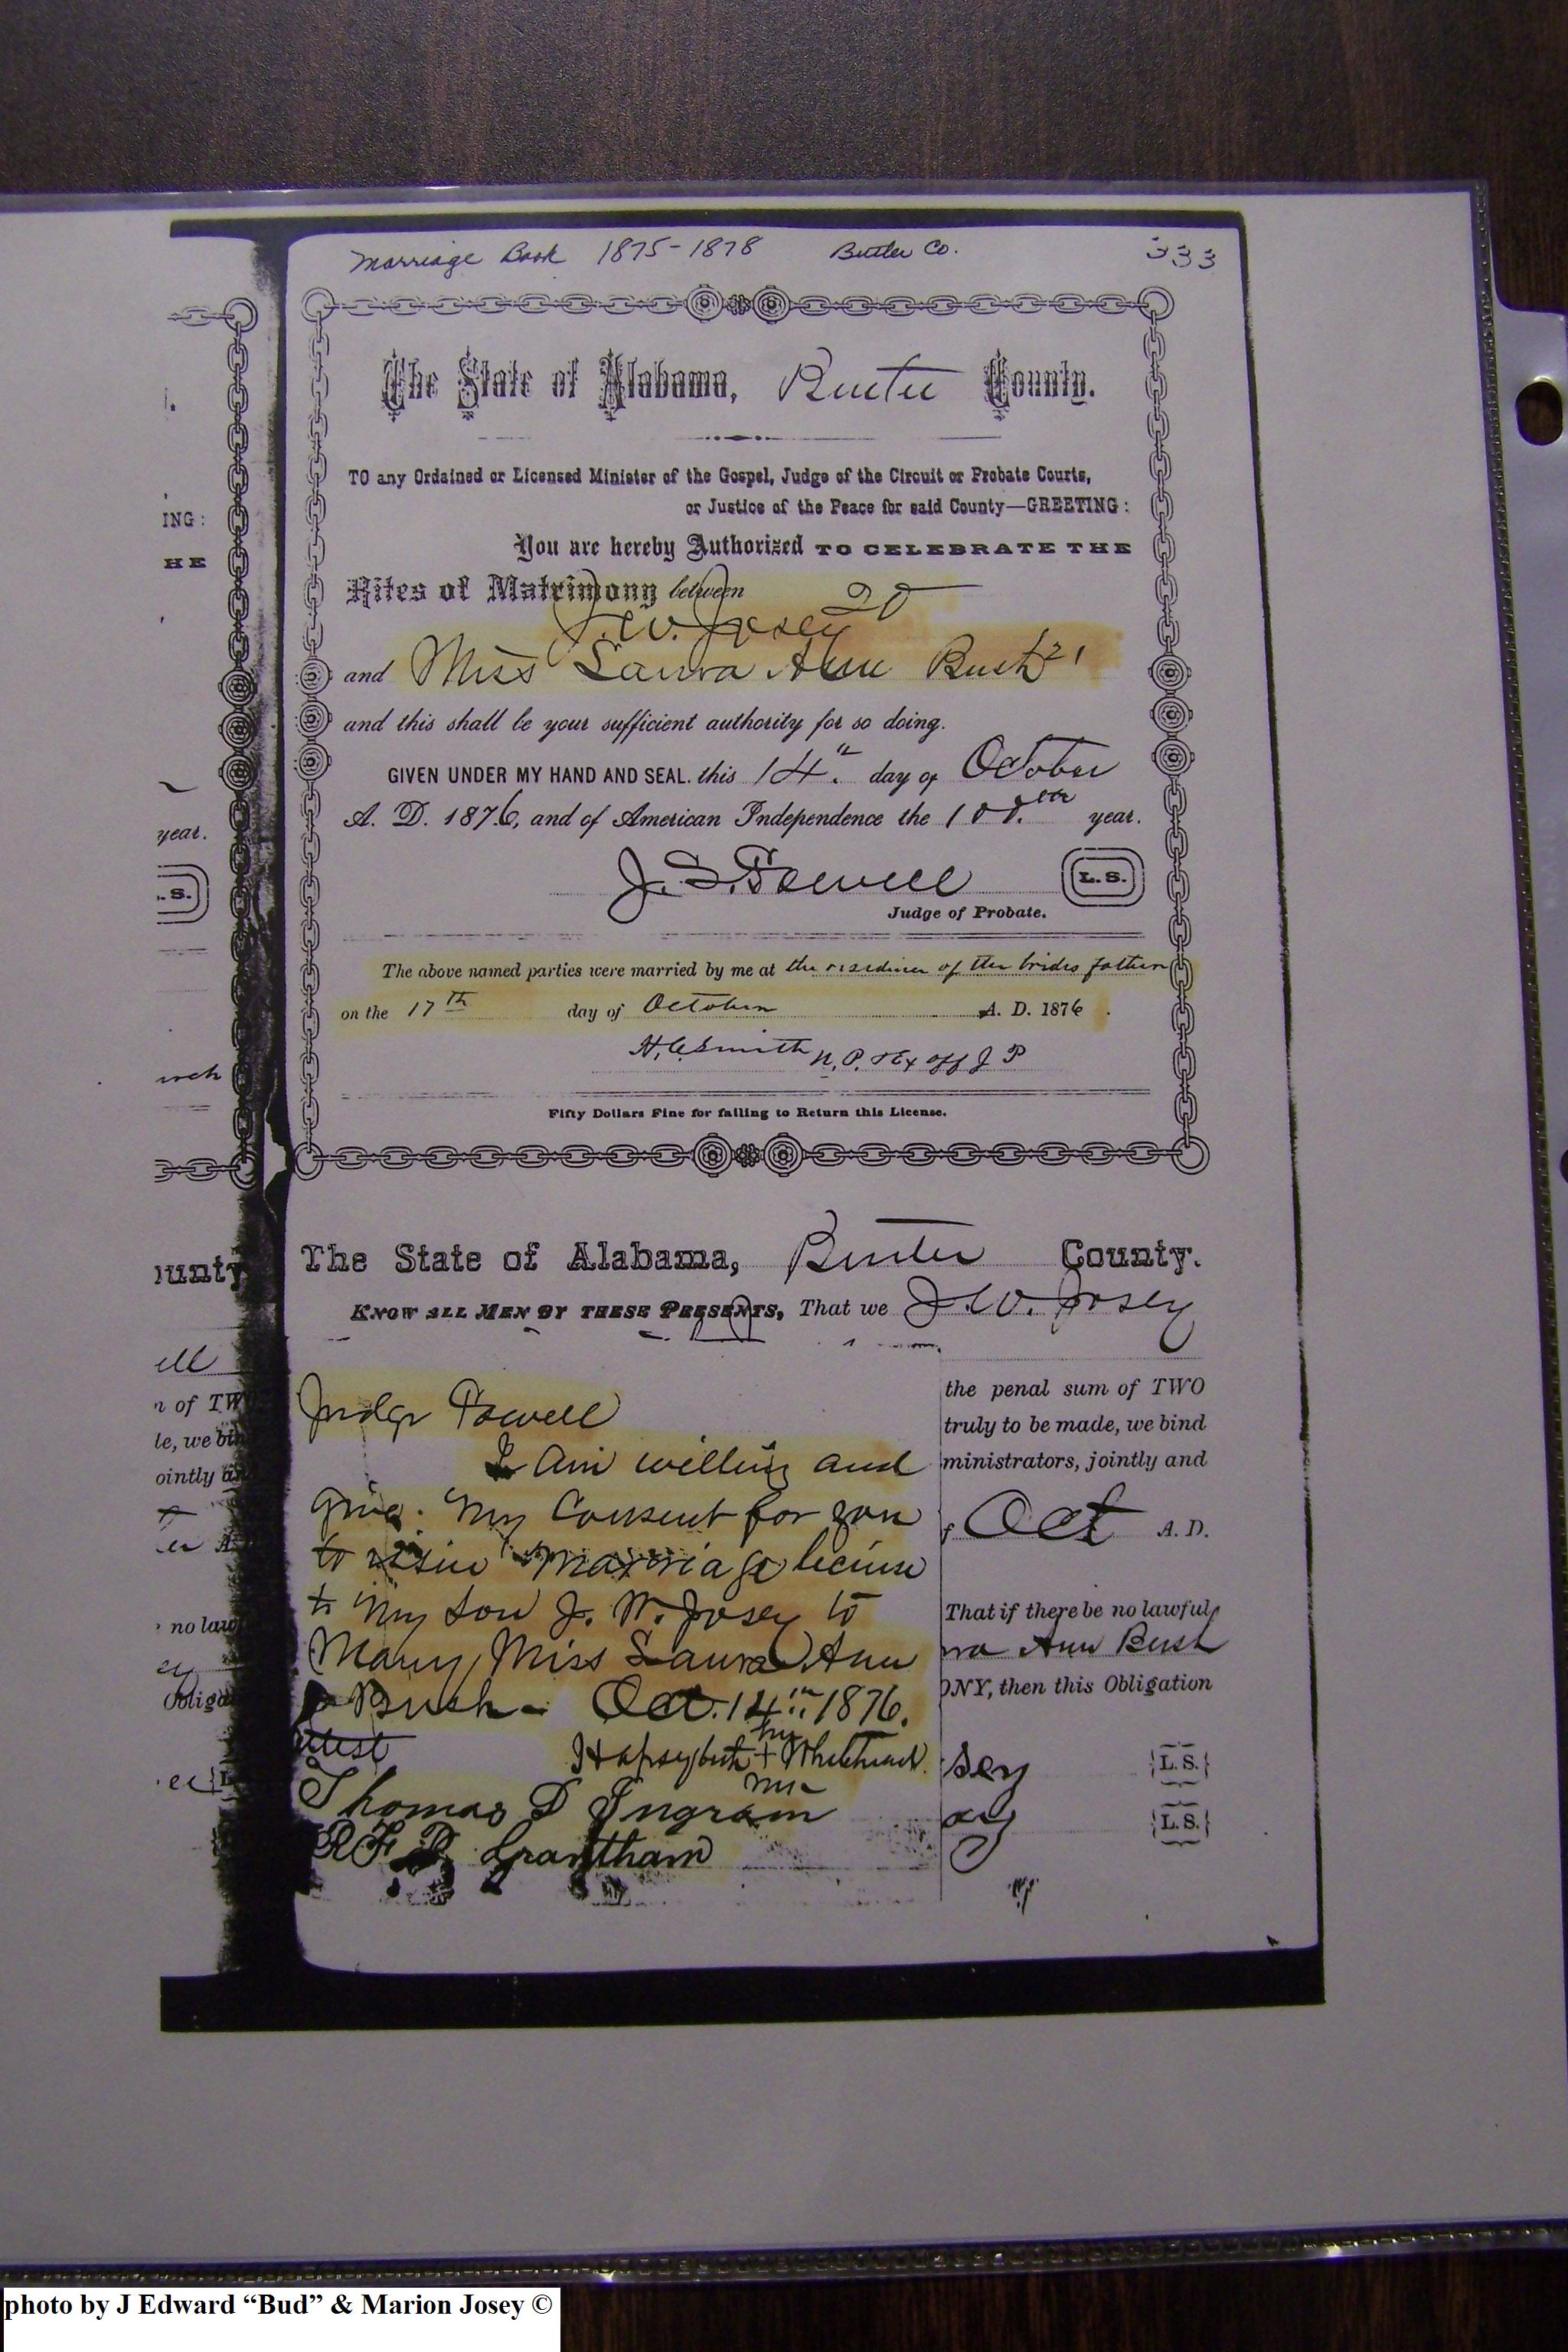 Marriage Book 1875-1878 Butler Co. 333
The State of Alabama, Butler County.
TO any Ordained or Licensed Minister of the Gospel, Judge of the Circuit or Probate Courts,
or Justice of the Peace for said County—GREETING:
You are hereby Authorized TO CELEBRATE THE
Rites of Matrimony between 20
J. W. Josey
and Miss Laura Ann Bush 21
and this shall be your sufficient authority for so doing.
GIVEN UNDER MY HAND AND SEAL. this 14th. day of October
A. D. 1876, and of American Independence the 100th year.
J. S. Powell L. S.
Judge of Probate.
The above named parties were married by me at the residence of the brides father
on the 17th day of October A. D. 1876.
H, C Smith N. P. & Ex off J P
Fifty Dollars Fine for failing to Return this License.
The State of Alabama, Butler County.
KNOW ALL MEN BY THESE PRESENTS, That we J. W. Josey
Judge Powell
I Am willing and
give. My Consent for you
to issue Marriage license
to My Son J. W. Josey to
Marry Miss Laura Ann
Bush - Oct. 14th 1876.
Attest
+
Thomas D Ingram
Grantham
the penal sum of TWO
truly to be made, we bind
ministrators, jointly and
Oct A. D.
That if there be no lawful
ra Ann Bush
ONY, then this Obligation
sey {L. S.}
{L. S.}
ING:
HE
year.
. S.
ounty
ell
n of TW
le, we bin
ointly an
no law
ey
Obliga
photo by J Edward “Bud” & Marion Josey ©